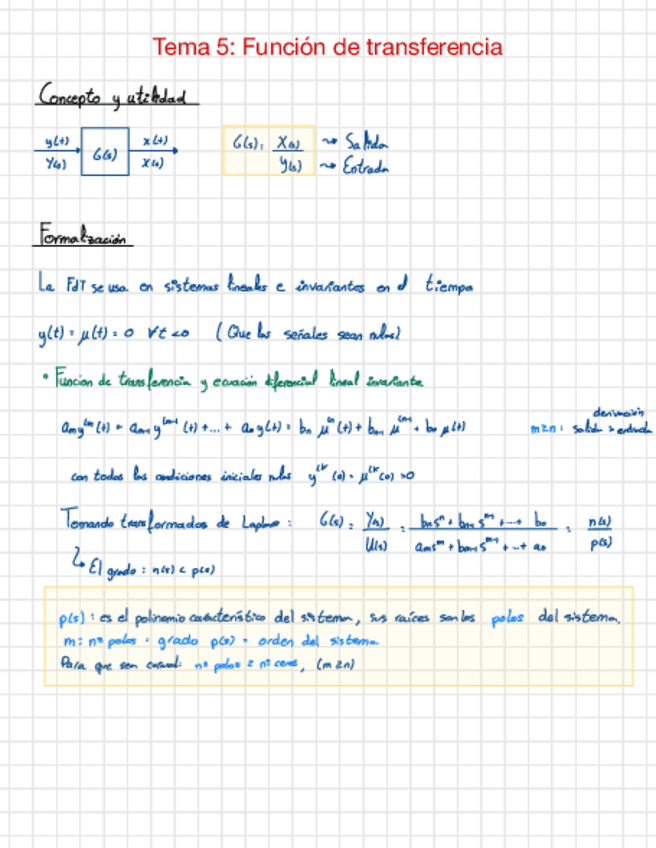 Tema 5: Función de transferencia
Concepto y utilidad
y(t) G(s) x(t)
Y(s) X(s)
G(s) = X(s) / Y(s) → Salida → Entrada
Formalización
La FdT se usa en sistemas lineales e invariantes en el tiempo
y(t) = μ(t) = 0 ∀t<0 (Que las señales sean nulas)
• Función de transferencia y ecuación diferencial lineal invariante
aₘy⁽ᵐ⁾(t) + aₘ₋₁y⁽ᵐ⁻¹⁾(t) + ... + a₀y(t) = bₙμ⁽ⁿ⁾(t) + bₙ₋₁μ⁽ⁿ⁻¹⁾ + b₀μ(t)
derivación
m≥n : salida > entrada
con todas las condiciones iniciales nulas y⁽ᵏ⁾(0) = μ⁽ᵏ⁾(0) = 0
Tomando transformadas de Laplace : G(s) = Y(s) / U(s) = bₙsⁿ + bₙ₋₁sⁿ⁻¹ + ... + b₀ / aₘsᵐ + bₘ₋₁sᵐ⁻¹ + ... + a₀ = n(s) / p(s)
↳ El grado : n(s) < p(s)
p(s) : es el polinomio característico del sistema, sus raíces son los polos del sistema.
m : nº polos = grado p(s) = orden del sistema
Para que sea causal: nº polos ≥ nº ceros, (m≥n)